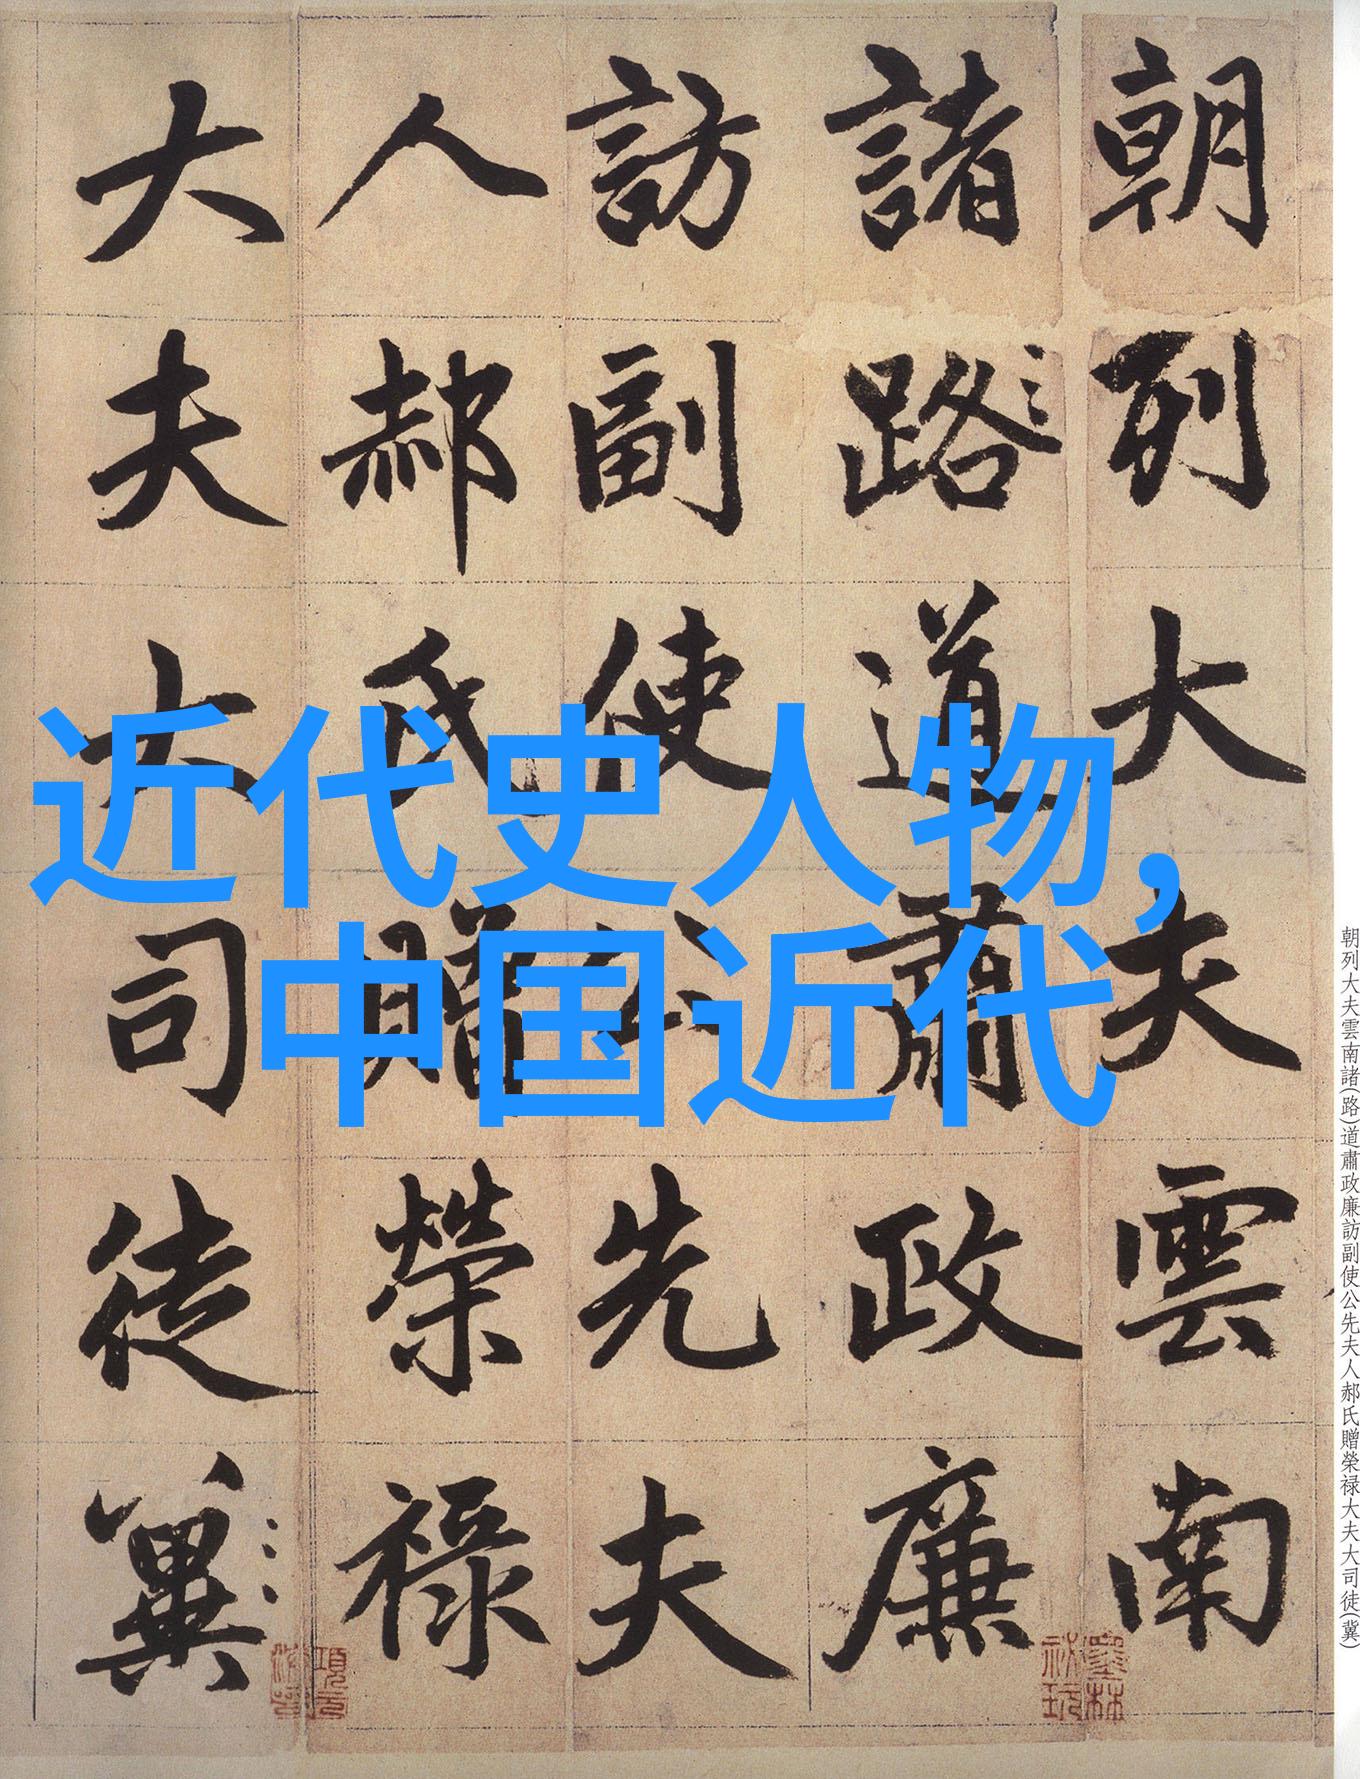 朝列大夫雲南
諸路道肅政廉
訪副使公先夫
人郝氏贈榮祿
大夫大司徒冀
近代史人物,
中国近代
朝列大夫雲南諸(路)道肅政廉訪副使公先夫人郝氏贈榮禄大夫大司徒(冀)